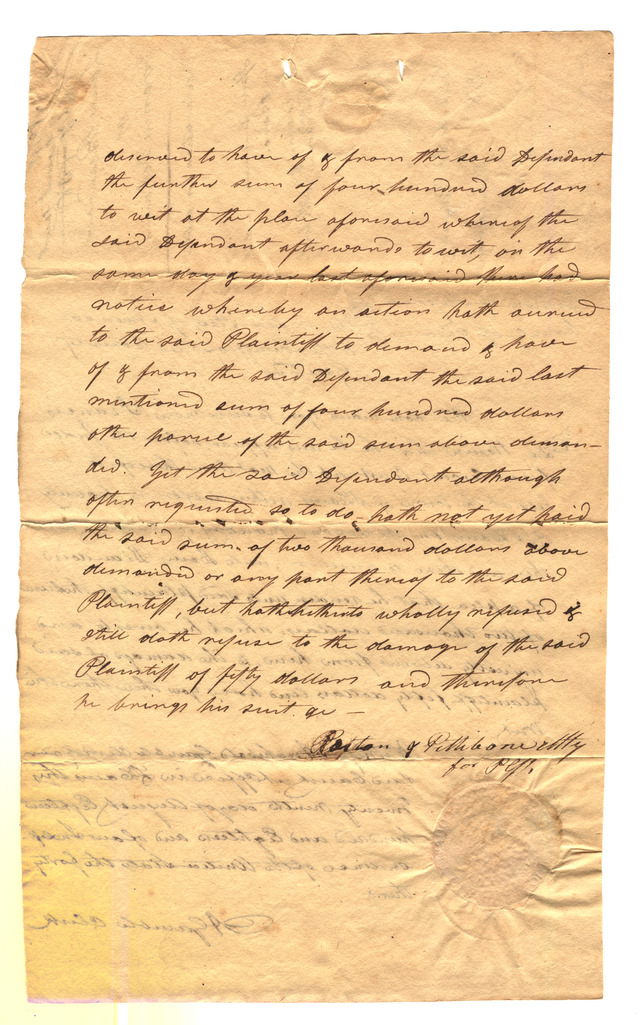 deserved to have of & from the said Defendant
the further sum of four hundred dollars
to wit at the place aforesaid whereof the
said Defendant afterwards to wit, on the
same day & year last aforesaid there had
notice whereby an action hath accrued
to the said Plaintiff to demand & have
of & from the said Defendant the said last
mentioned sum of four hundred dollars
other parcel of the said sum above deman-
ded. Yet the said Defendant although
often requested so to do hath not yet paid
the said sum of two thousand dollars above
demanded or any part thereof to the said
Plaintiff, but hath hitherto wholly refused &
still doth refuse to the damage of the said
Plaintiff of fifty dollars and therefore
he brings his suit &c —
& Pettibone Atty
for Plff.